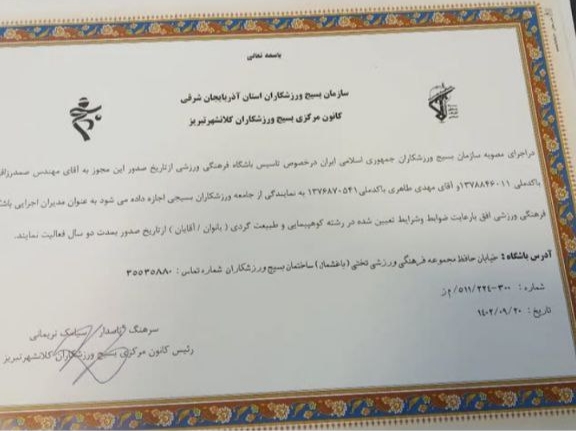 باسمه تعالی
سازمان بسیج ورزشکاران استان آذربایجان شرقی
کانون مرکزی بسیج ورزشکاران کلانشهرتبریز
دراجرای مصوبه سازمان بسیج ورزشکاران جمهوری اسلامی ایران درخصوص تاسیس باشگاه فرهنگی ورزشی ازتاریخ صدور این مجوز به آقای مهندس
باکدملی ۱۳۷۸۸۴۶۰۱۱ و آقای مهدی طاهری باکدملی ۱۳۷۶۸۷۰۵۴۱ به نمایندگی از جامعه ورزشکاران بسیجی اجازه داده می شود به عنوان مدیران اجرایی
فرهنگی ورزشی افق بارعایت ضوابط وشرایط تعیین شده در رشته کوهپیمایی و طبیعت گردی ( بانوان / آقایان ) ازتاریخ صدور بمدت دو سال فعالیت نمایند.
آدرس باشگاه : خیابان حافظ مجموعه فرهنگی ورزشی تختی (باغشمال) ساختمان بسیج ورزشکاران شماره تماس : ۳۵۵۳۵۸۸۰
شماره : ۳۰۰-۵۱۱/۲۲۴/م ز
تاریخ : ۱۴۰۲/۰۹/۲۰
سرهنگ پاسدار سیامک نریمانی
رئیس کانون مرکزی بسیج ورزشکاران کلانشهرتبریز